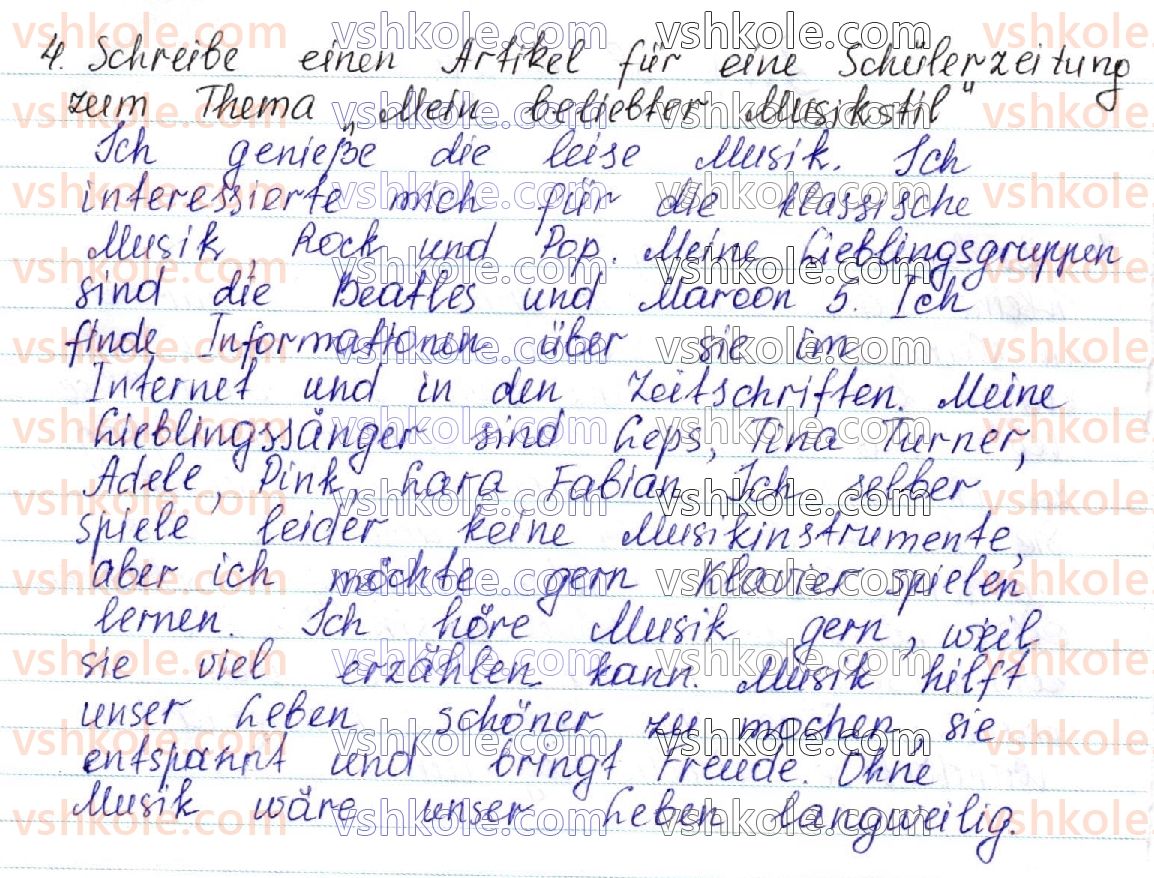 4. Schreibe einen Artikel für eine Schülerzeitung
zum Thema „Mein beliebter Musikstil"
Ich genieße die leise Musik. Ich
interessierte mich für die klassische
Musik, Rock und Pop. Meine Lieblingsgruppen
sind die Beatles und Maroon 5. Ich
finde Informationen über sie im
Internet und in den Zeitschriften. Meine
Lieblingssänger sind Leps, Tina Turner,
Adele, Pink, Lara Fabian. Ich selber
spiele leider keine Musikinstrumente,
aber ich möchte gern Klavier spielen
lernen. Ich höre Musik gern, weil
sie viel erzählen kann. Musik hilft
unser Leben schöner zu machen, sie
entspannt und bringt Freude. Ohne
Musik wäre unser Leben langweilig.
vshkole.com